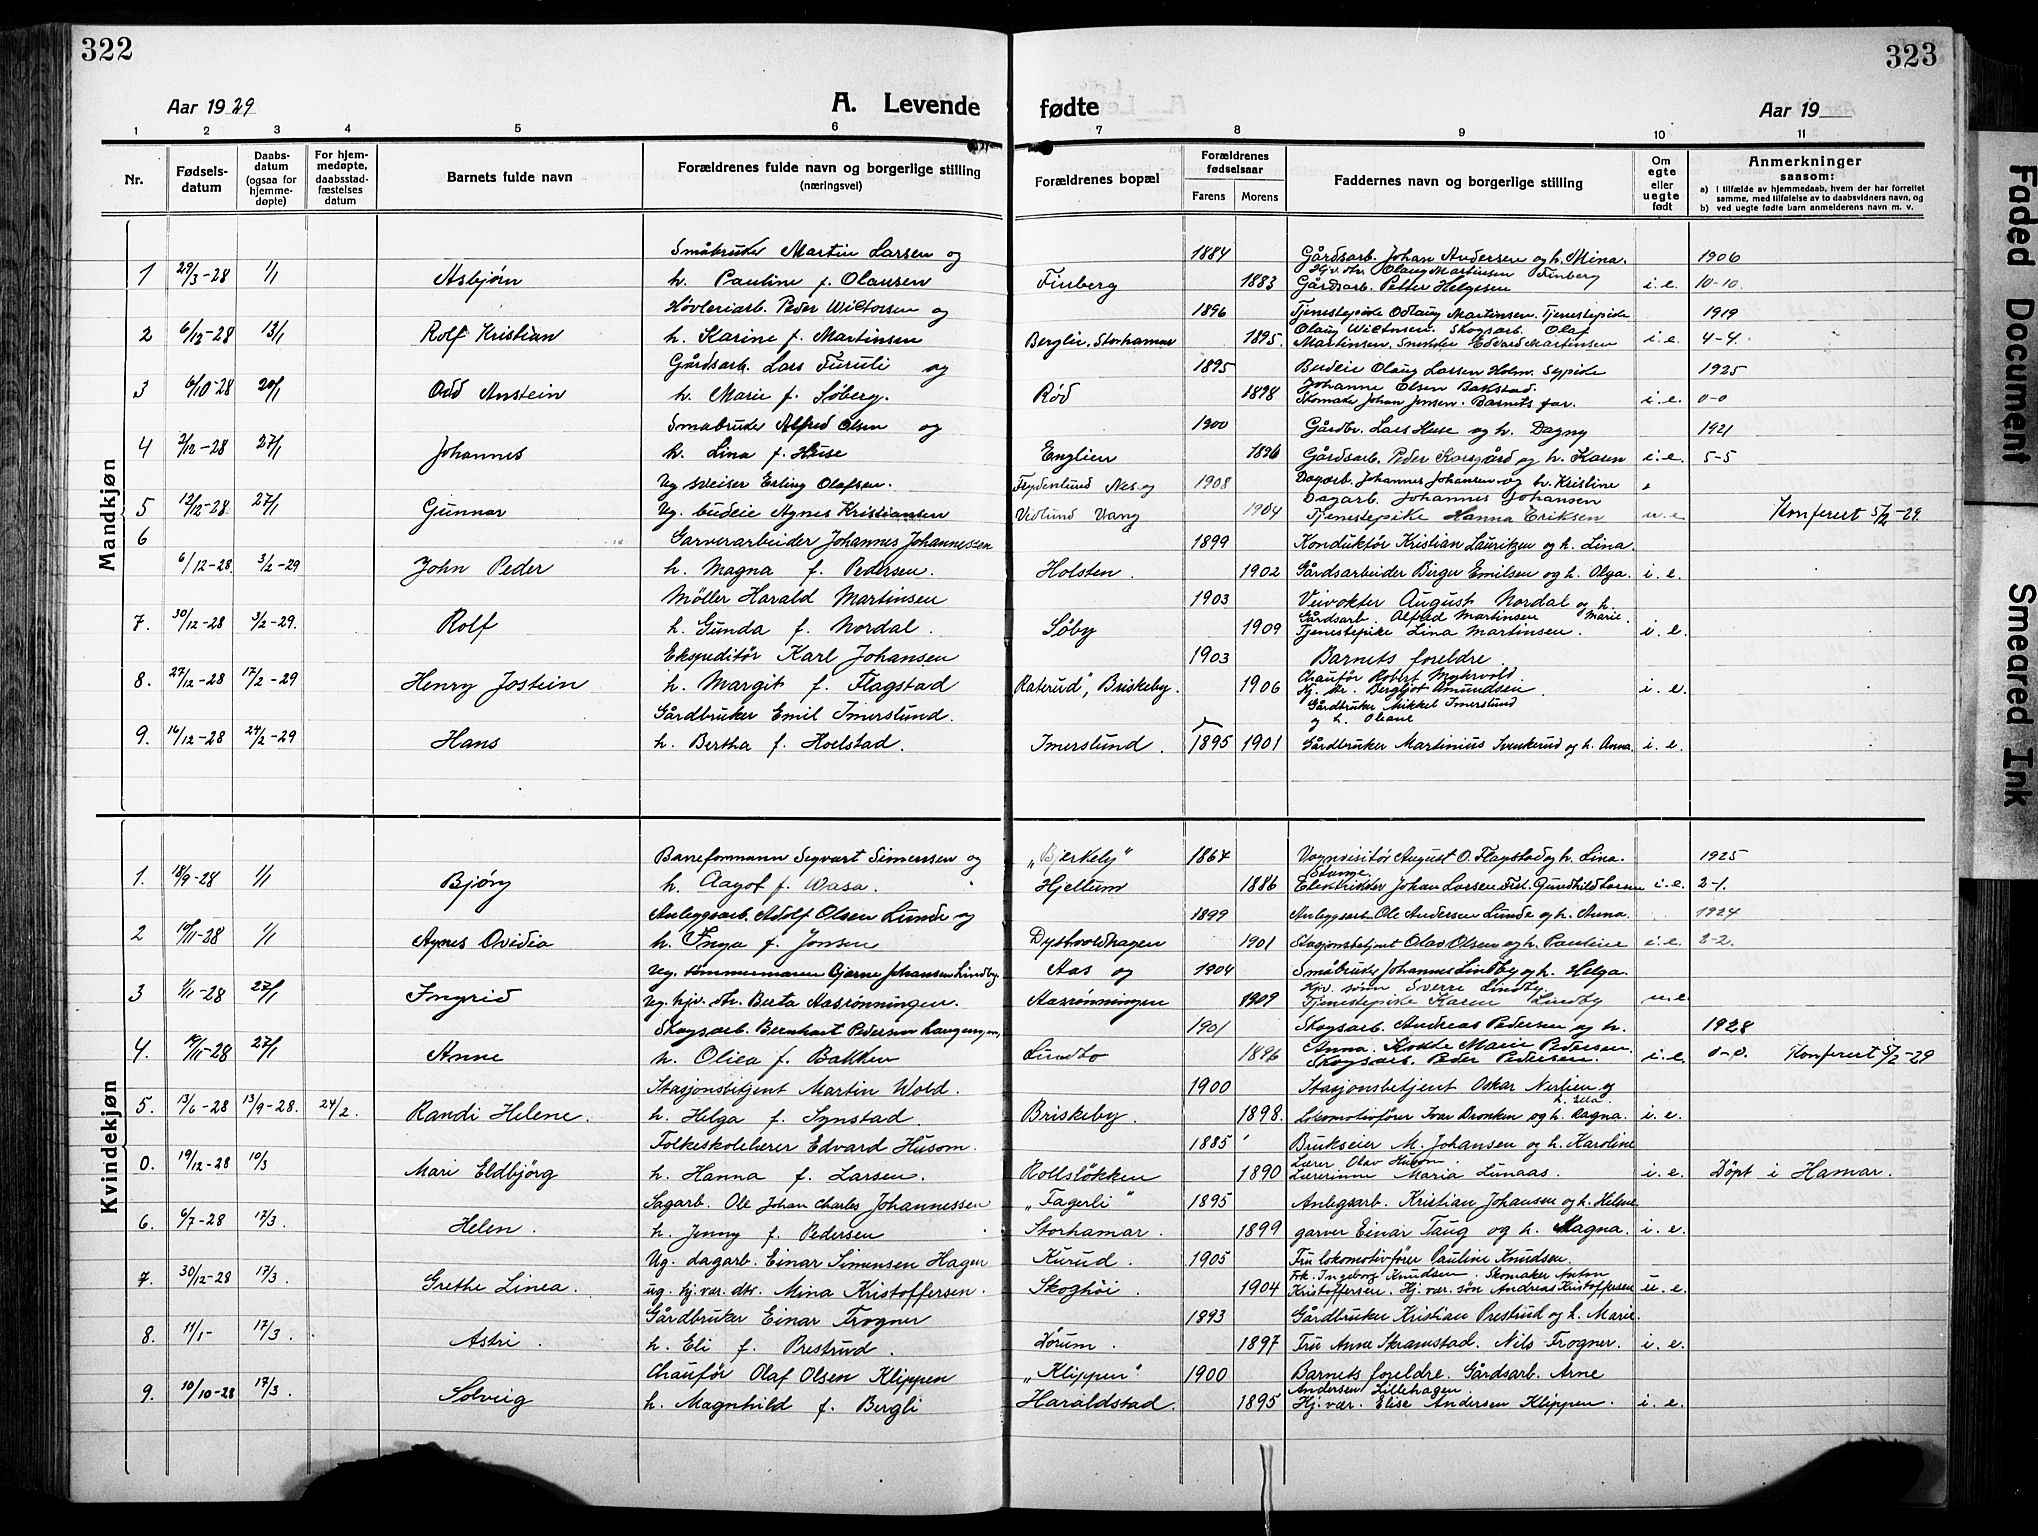 322
Aar 1929
A. Levende
1 2 3 4 5 6
Nr.
Fødsels-
datum
Daabs-
datum
(ogsaa for
hjemme-
døpte)
For hjem-
medøpte,
daabsstad-
fæstelses
datum
Barnets fulde navn
Forældrenes fulde navn og borgerlige stilling
(næringsvei)
Mandkjøn
Småbruker Martin Larsen og
1 29/3-28 1/1 Asbjørn h. Pauline f. Olausen
Høvleriarb. Peder Wictorsen og
2 6/12-28 13/1 Rolf Kristian h. Karine f. Martinsen
Gårdsarb. Lars Furuli og
3 6/10-28 20/1 Odd Anstein h. Marie f. Søberg.
Småbruker Alfred Olsen og
4 2/12-28 27/1 Johannes h. Lina f. Huse
Ug sveiser Erling Olafsen.
5 12/12-28 27/1 Gunnar Ug. budeie Agnes Kristiansen
6 Garverarbeider Johannes Johannessen
6/12-28 3/2-29 John Peder h. Magna f. Pedersen.
Møller Harald Martinsen
7. 30/12-28 3/2-29. Rolf h. Gunda f. Nordal.
Ekspeditør Karl Johansen
8. 27/12-28 17/2-29 Henry Jostein h. Margit f. Flagstad
Gårdbruker Emil Imerslund.
9. 16/12-28 24/2-29 Hans h. Bertha f. Hoelstad.
Kvindekjøn
Baneformann Segvart Simensen og
1. 18/9-28 1/1 Bjørg h. Aagot f. Wasa.
Anleggsarb. Adolf Olsen Lunde og
2 10/11-28 1/1 Agnes Ovidia h. Inga f. Jonsen
Ug. tømmermann Bjarne Johansen Lindby.
3 1/11-28 27/1 Ingrid Ug. hjv. dtr. Berta Aasrønningen.
Skogsarb. Bernhart Pedersen
4. 27/1 Anne h. Oliea f. Bakken
Stasjonsbetjent Martin Wold.
5. 13/6-28 13/9-28. 24/2. Randi Helene. h. Helga f. Synstad.
Folkeskolelærer Edvard Husom.
0. 19/12-28 10/3 Mari Eldbjørg h. Hanna f. Larsen.
Sagarb. Ole Johan Charles Johannessen
6. 6/7-28 17/3. Helen. h. Jenny f. Pedersen
Ug. dagarb. Einar Simensen Hagen
7. 30/12-28 17/3. Grethe Linea. ug. hj. vær. dtr. Mina Kristoffersen.
Gårdbruker Einar Frogner
8. 11/1- 17/3. Astri. h. Eli f. Prestrud.
Chaufør Olaf Olsen Klippen
9. 10/10-28 17/3. Solveig h. Magnhild f. Bergli
323
fødte
Aar 19
7 8 9 10 11
Forældrenes bopæl
Forældrenes
fødselsaar
Farens Morens
Faddernes navn og borgerlige stilling
Om
egte
eller
uegte
født
Anmerkninger
saasom:
a) i tilfælde av hjemmedaab, hvem der har forrettet
samme, med tilføielse av to daabsvidners navn, og
b) ved uegte fødte barn anmelderens navn m. v.
1884 Gårdsarb. Johan Andersen og h. Mina. 1906
Hjv. dtr. Olaug Martinsen Finberg
Finberg 1883 Gårdsarb. Petter Helgesen i. e. 10-10.
1896 Tjenestepike Odlaug Martinsen. Tjenestepike 1919
Olaug Wictorsen. Skogsarb. Olaf
Berglie, Storhamar 1895. Martinsen. Snekker Edvard Martinsen i. e. 4-4.
1895 Budeie Olaug Larsen Holm. Sypike 1925
Johanne Olsen Bakstad.
Rød 1898 Skomaker Johan Jensen. Barnets far. i. e. 0-0
1900 Gårdbr. Lars Huse og h. Dagny 1921
Englien 1896 Gårdsarb. Peder Korsgård og h. Karen i. e. 5-5
Frydenlund Nes og 1908 Dagarb. Johannes Johansen og h. Kristine
Dagarb. Johannes Johansen
Vidlund Vang 1904 Tjenestepike Hanna Eriksen u. e Konferert 5/2-29.
1899 Konduktør Kristian Lauritzen og h. Lina.
Holsten. 1902 Gårdsarbeider Birger Emilsen og h. Olga. i. e.
1903 Veivokter August Nordal og h.
Gårdsarb. Alfred Martinsen Marie.
Søby 1909 Tjenestepike Lina Martinsen. i. e.
1903 Barnets foreldre.
Chaufør Robert Myhrvold.
Raterud", Briskeby. 1906 Hj. dtr. Bergljot Amundsen. i. e.
Gårdbruker Mikkel Imerslund
og h. Oleane
Imerslund. 1895 1901 Gårdbruker Martinius Svenkerud og h. Anna. i. e.
„Bjerkely" 1867 Vognvisitør August O. Flagstad og h. Lina. 1925
Stange.
Hjellum 1886 Elektriker Johan Larsen Frk. Gundhild Larsen i. e. 2-1.
1899 Anleggsarb. Ole Andersen Lunde og h. Anna. 1924
Dystvoldhagen 1901 Stasjonsbetjent Olav Olsen og h. Pauline i. e. 2-2.
Aas og 1904 Småbruker Johannes Lindby og h. Helga.
Hjv. sønn Sverre Lindby.
Aasrønningen 1909 Tjenestepike Karen Lindby u. e.
1901 Skogsarb. Andreas Pedersen og h. 1928
Anna. Kokke Marie Pedersen.
Lundto 1896 Skogsarb. Peder Pedersen. i. e. 0-0. Konferert 5/2-29
1900 Stasjonsbetjent Oskar Nerlien og
h. Ella.
Briskeby. 1898. Lokomotivfører Ivar Dronken og h. Ragna. i. e.
1885 Brukseier M. Johansen og h. Karoline
Lærer Olav Husom.
Rollsløkken 1890 Lærerinne Maria Lunaas. i. e. Døpt i Hamar.
„Fagerli" 1895 Anlegsarb. Kristian Johansen og h. Helene.
Storhamar. 1899 garver Einar Taug og h. Magna. i. e.
Kurud. 1905 Fru lokomotivfører Pauline Knudsen.
Frk. Ingeborg Knudsen. Skomaker Anton
Skoghøi. 1904 Kristoffersen. Hj. vær. søn Andreas Kristoffersen u. e.
1893 Gårdbruker Kristian Prestrud og h. Marie.
Lørum. 1897 Fru Anne Skramstad. Nils Frogner. i. e.
„Klippen" 1900 Barnets foreldre. Gårdsarb. Arne
Andersen Lillehagen.
Haraldstad. 1895 Hj. vær. Elise Andersen Klippen. i. e.
Faded Document
Smeared Ink